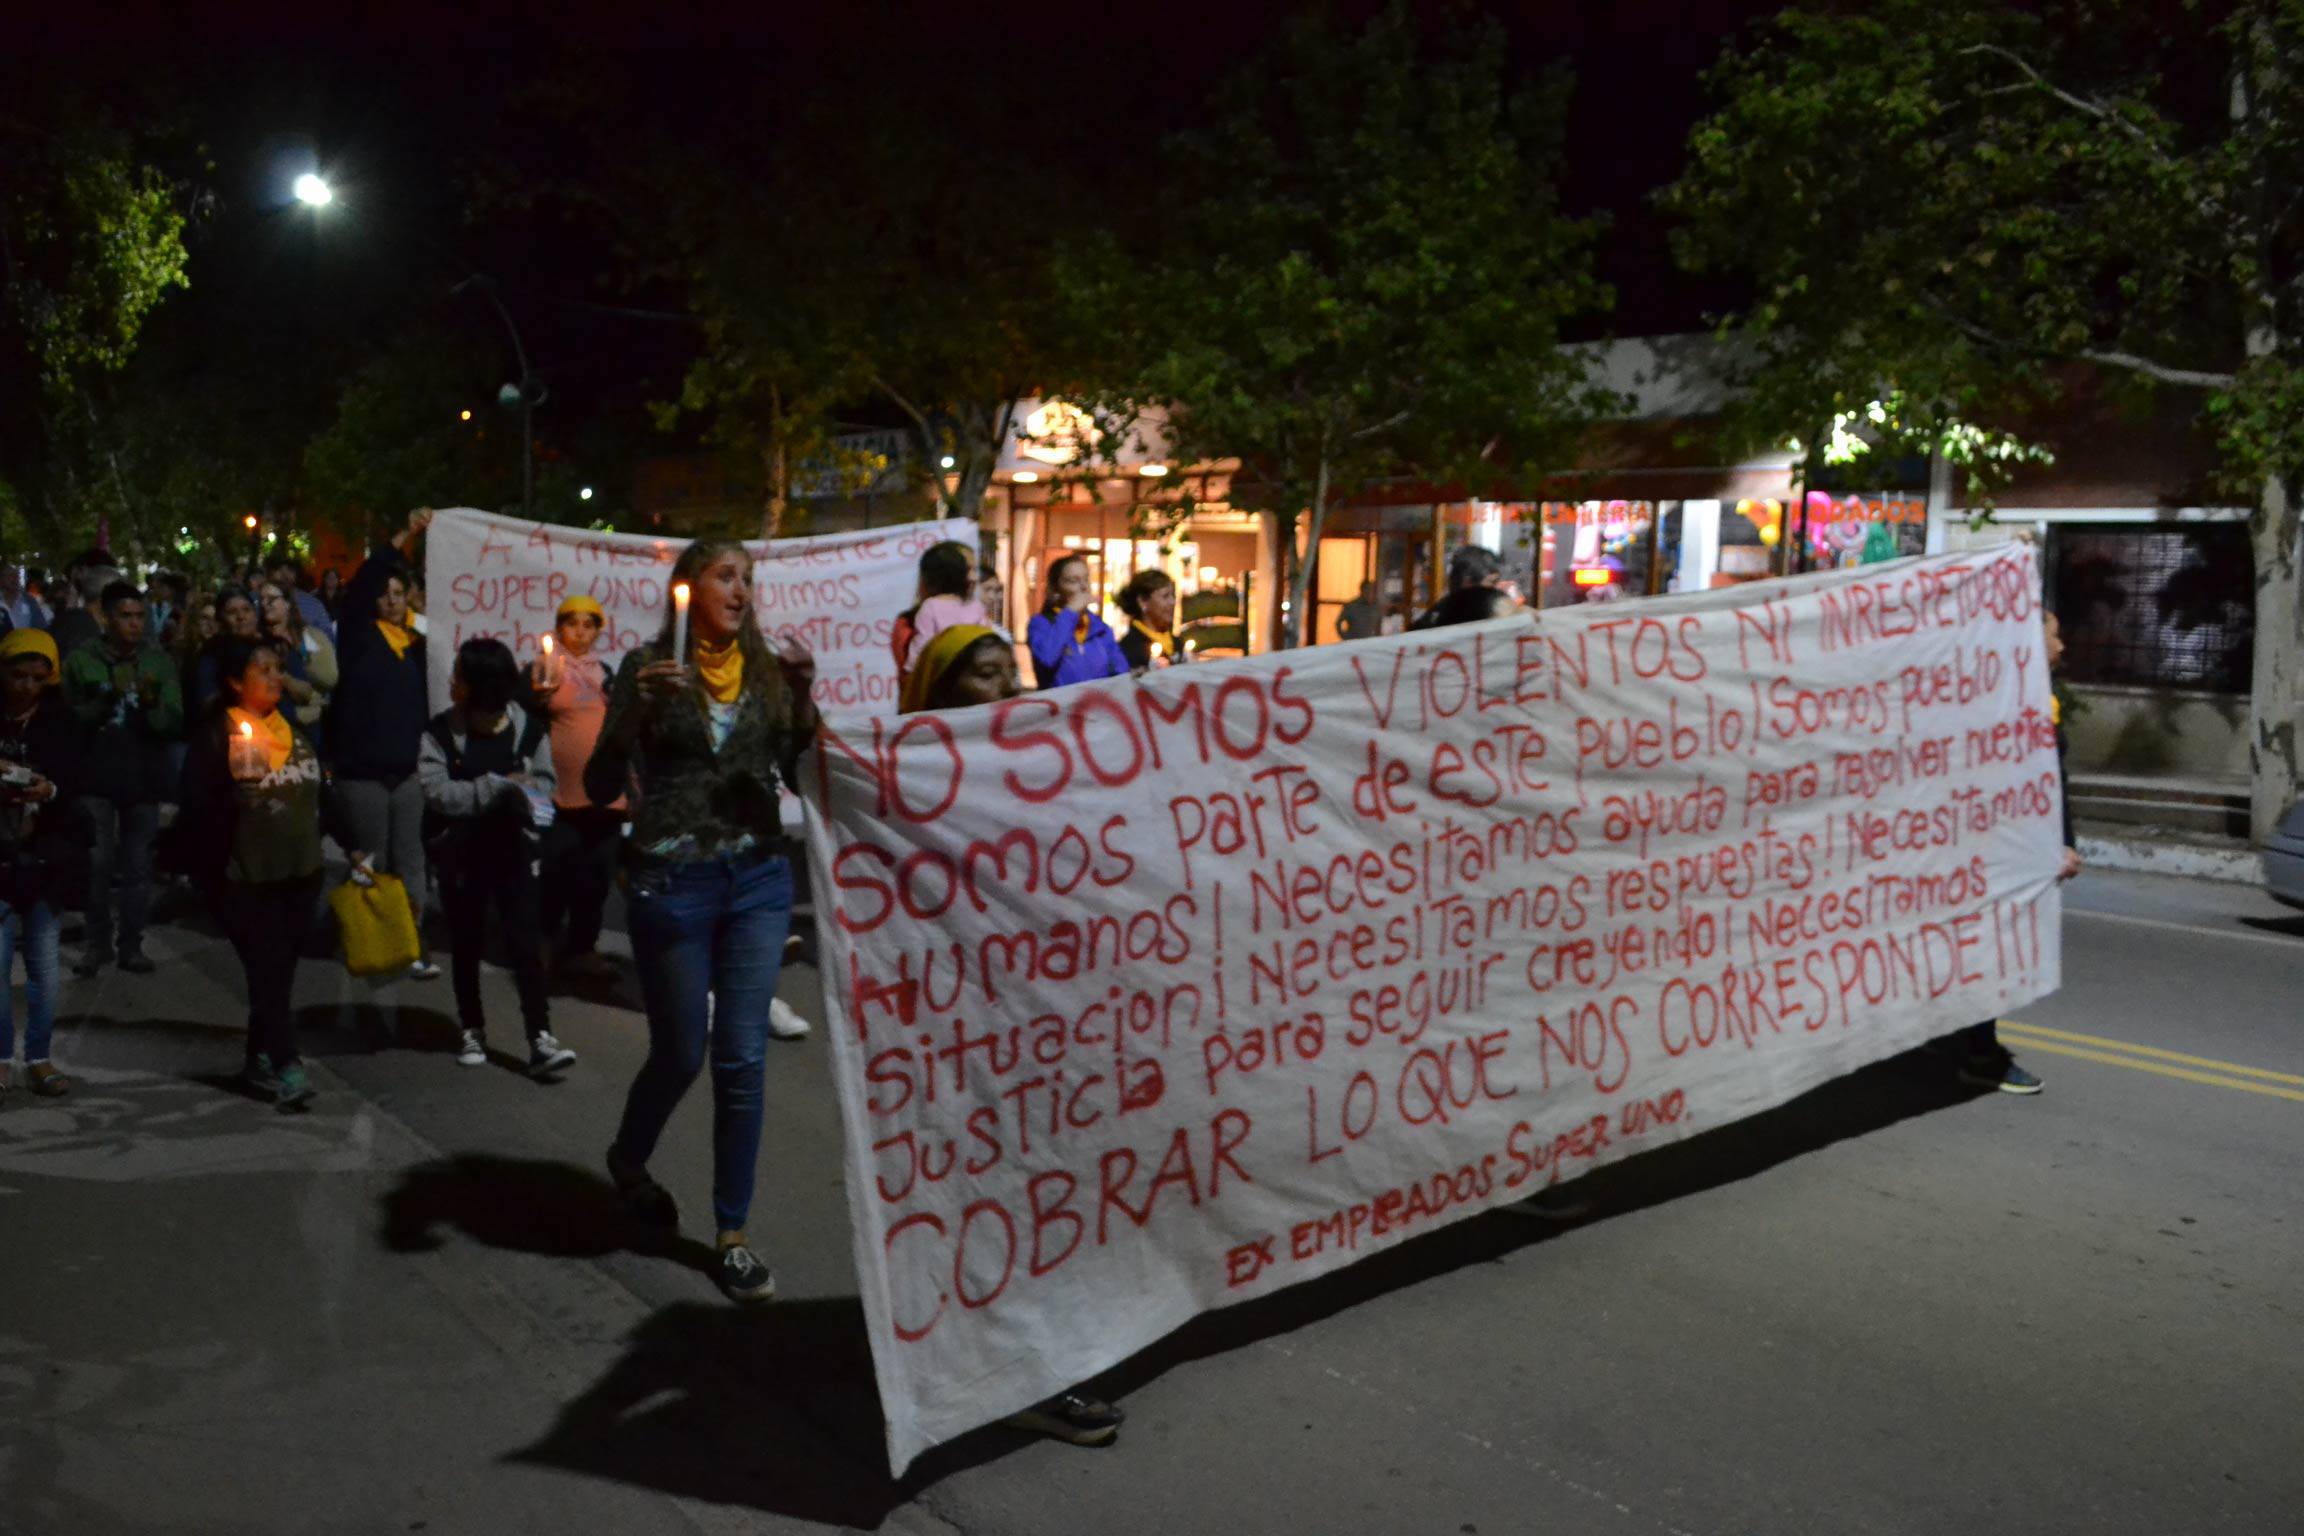 A 4 mes cierre del
SUPER UNO
NO SOMOS VIOLENTOS NI IRRESPETUOSOS
SOMOS PARTE de este PUEBLO! SOMOS PUEBLO Y
HUMANOS! NECESITAMOS AYUDA PARA RESOLVER NUESTRA
SITUACION! NECESITAMOS RESPUESTAS! NECESITAMOS
JUSTICIA PARA SEGUIR CREYENDO! NECESITAMOS
COBRAR LO QUE NOS CORRESPONDE!!!
EX EMPLEADOS SUPER UNO.